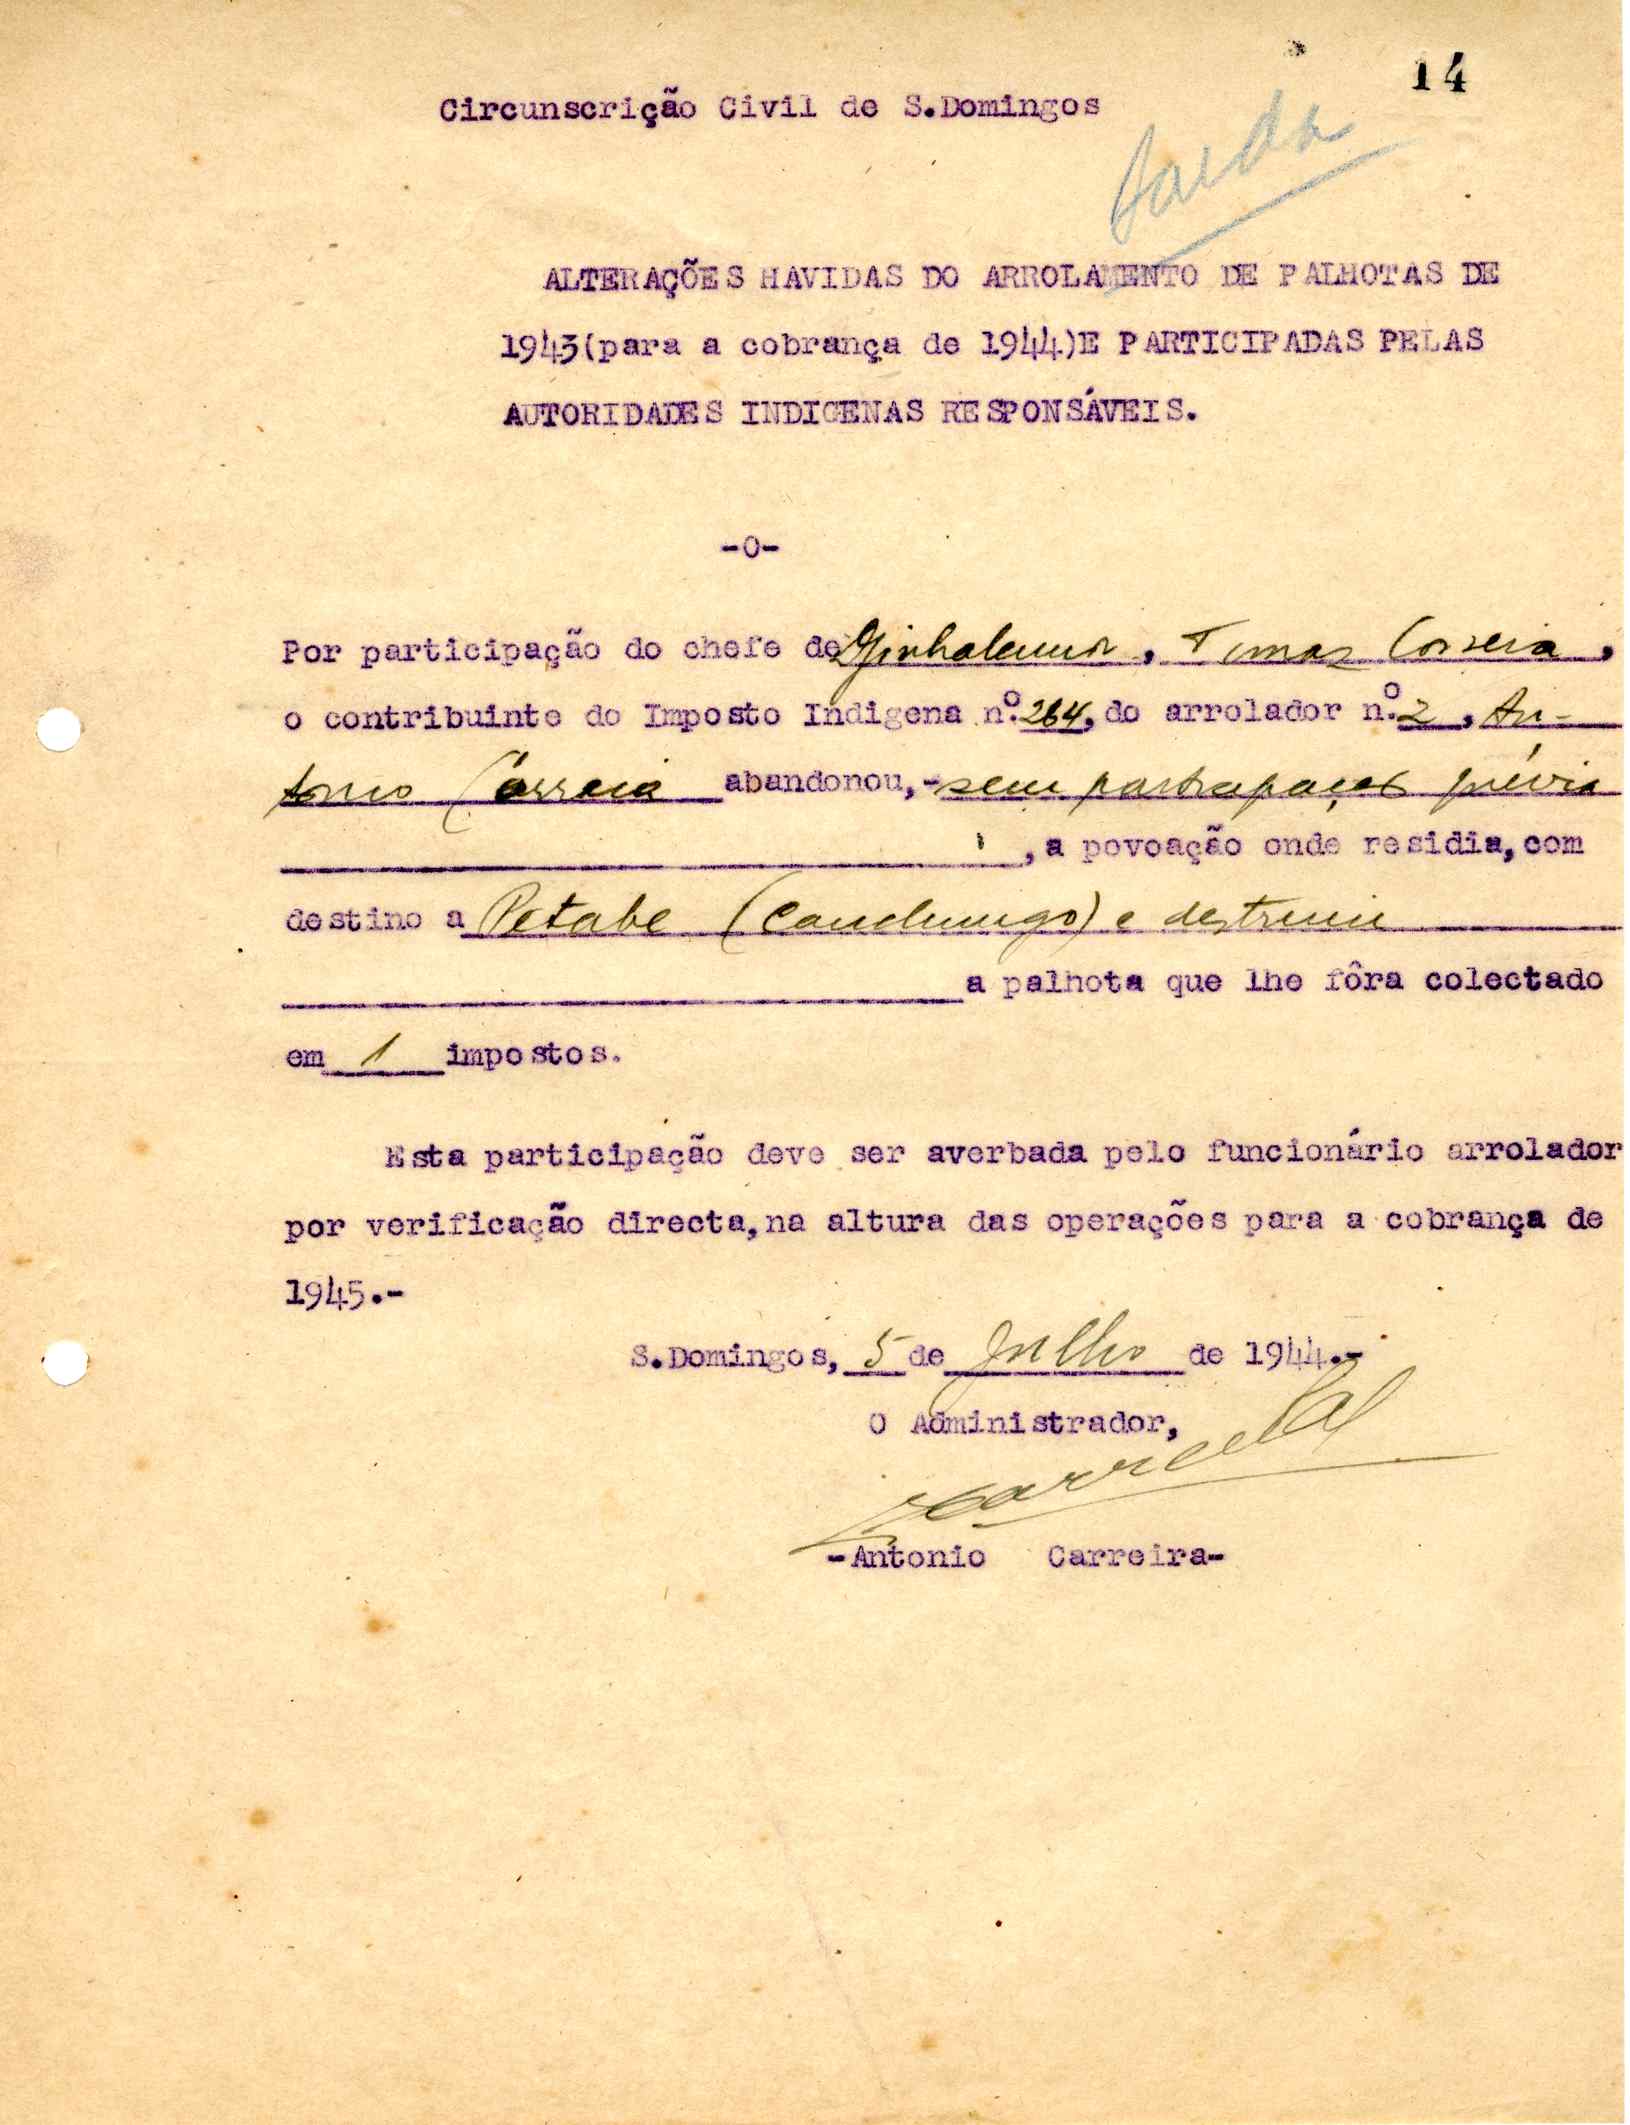 14
Circunscrição Civil de S.Domingos
ALTERAÇÕES HAVIDAS DO ARROLAMENTO DE PALHOTAS DE
1943(para a cobrança de 1944)E PARTICIPADAS PELAS
AUTORIDADES INDIGENAS RESPONSÁVEIS.
-0-
Por participação do chefe de , Tomaz Correia,
o contribuinte do Imposto Indigena nº.264, do arrolador nº.2, An-
tonio Correia abandonou,-sem participação prévia
, a povoação onde residia,com
destino a Petabe ( ) e destruiu
a palhota que lhe fôra colectado
em 1 impostos.
Esta participação deve ser averbada pelo funcionário arrolador
por verificação directa,na altura das operações para a cobrança de
1945.-
S.Domingos, 5 de Julho de 1944.-
O Administrador,
-Antonio Carreira-